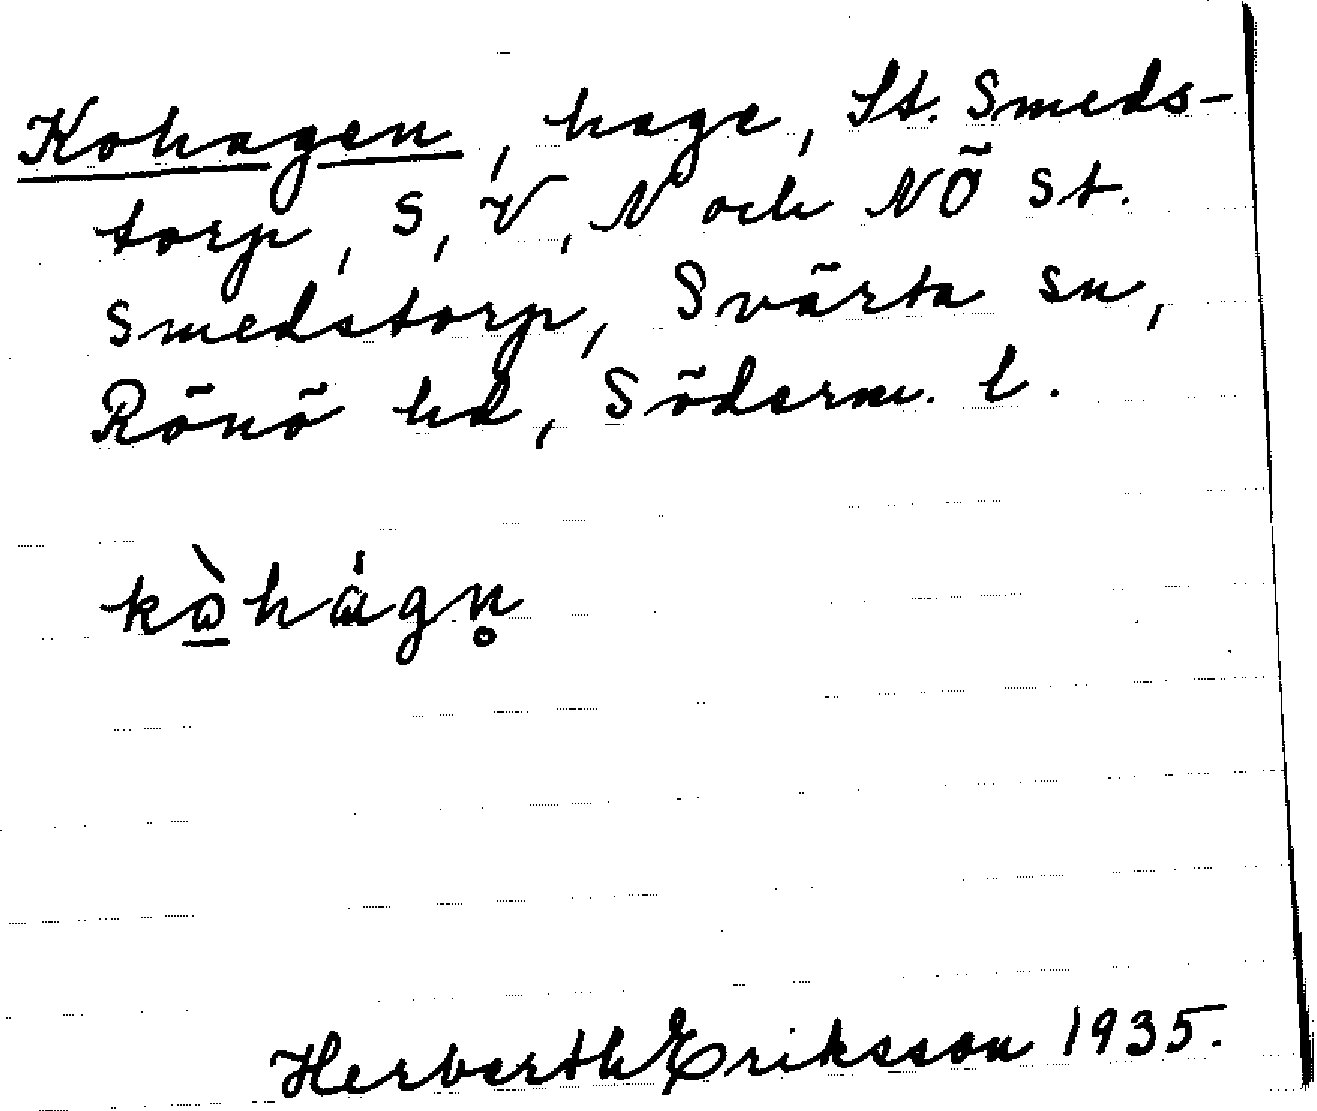 Kohagen, hage, St. Smeds-
torp, S, V, N och NÖ St.
Smedstorp, Svärta sn,
Rönö hd, Söderm. l.
kὼhágn̥
Herberth Eriksson 1935.